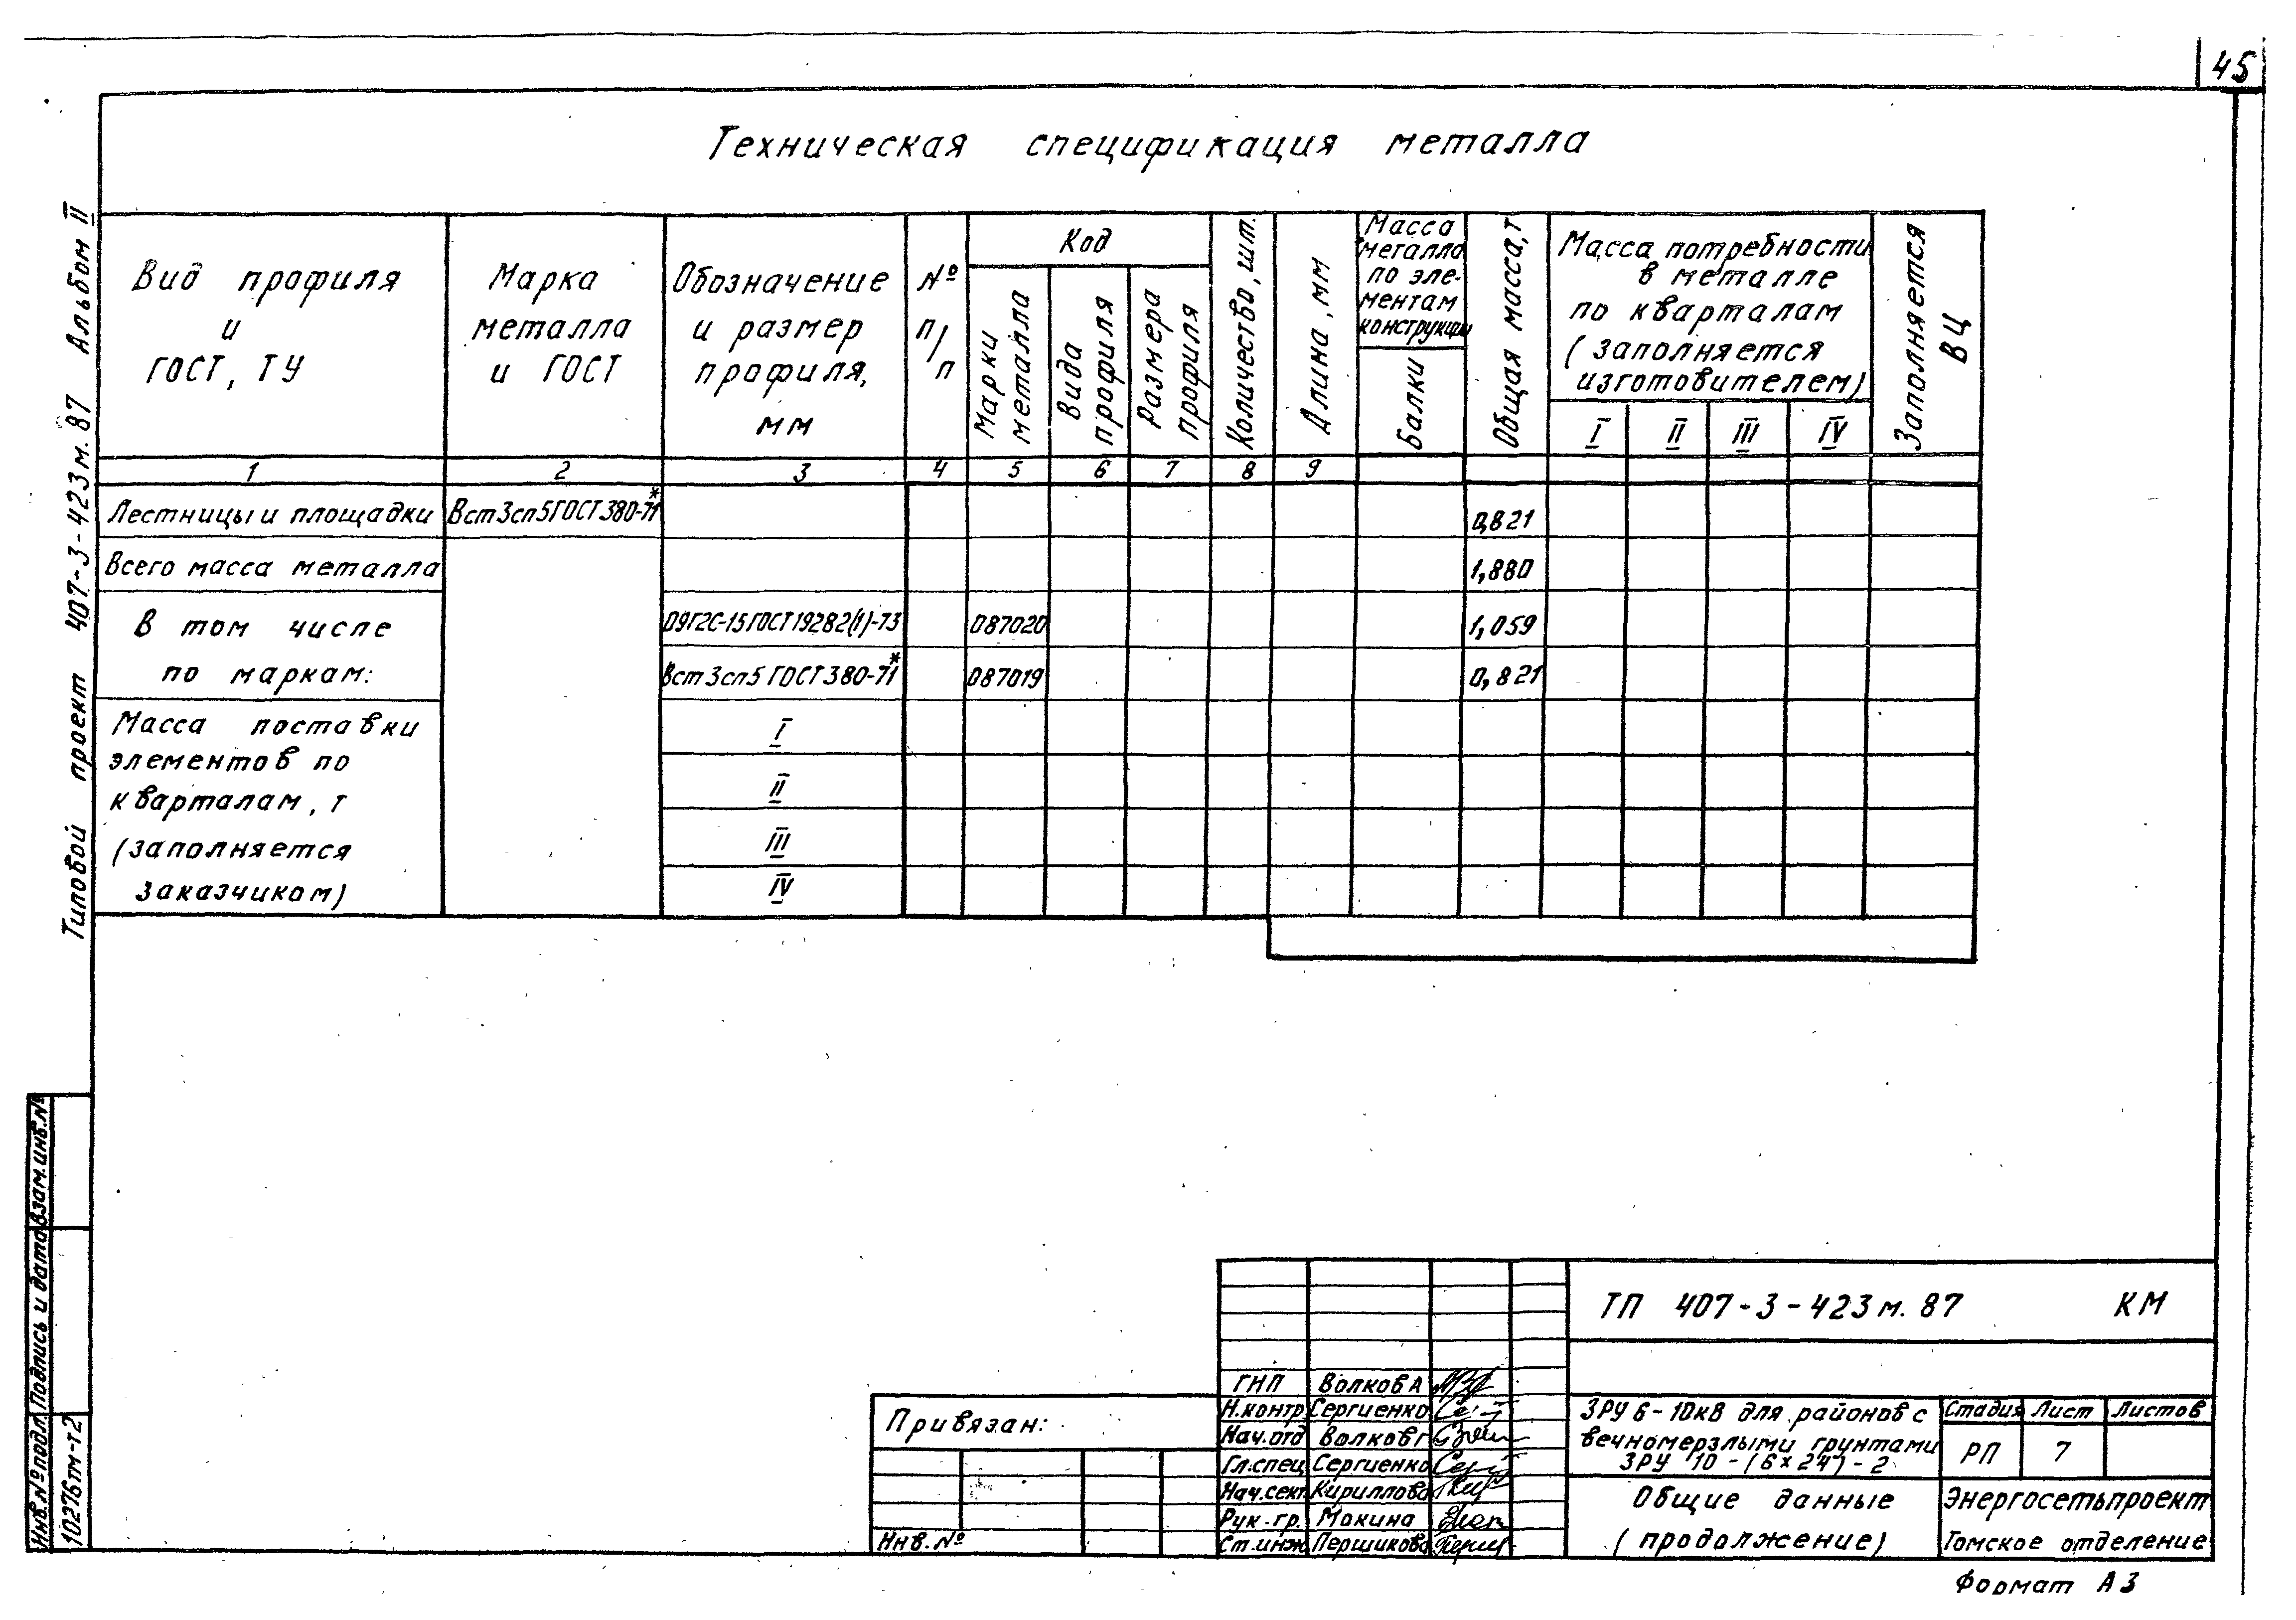 45
Техническая спецификация металла
Вид профиля
и
ГОСТ, ТУ
Марка
металла
и ГОСТ
Обозначение
и размер
профиля,
мм
№
п/п
Код
Марки
металла
Вида
профиля
Размера
профиля
Количество, шт.
Длина, мм
Масса
металла
по эле-
ментам
конструкции
Балки
Общая масса, т
Масса потребности
в металле
по кварталам
(заполняется
изготовителем)
I II III IV
Заполняется
ВЦ
1 2 3 4 5 6 7 8 9
Лестницы и площадки Вст3сп5 ГОСТ 380-71* 0,821
Всего масса металла 1,880
В том числе
по маркам:
09Г2С-15 ГОСТ 19282(1)-73 087020 1,059
Вст3сп5 ГОСТ 380-71* 087019 0,821
Масса поставки
элементов по
кварталам, т
(заполняется
заказчиком)
I
II
III
IV
Типовой проект 407-3-423м.87 Альбом II
Взам.инв.№
Подпись и дата
Инв.№подл.
10276тм-т2
Привязан:
Инв.№
ГИП Волков А
Н.контр. Сергиенко
Нач.отд Волков Г
Гл.спец. Сергиенко
Нач.сект. Кириллова
Рук.гр. Мокина
Ст.инж. Першикова
ТП 407-3-423м.87 КМ
ЗРУ 6-10кВ для районов с
вечномерзлыми грунтами
ЗРУ 10-(6×24)-2
Стадия Лист Листов
РП 7
Общие данные
(продолжение)
Энергосетьпроект
Томское отделение
Формат А3